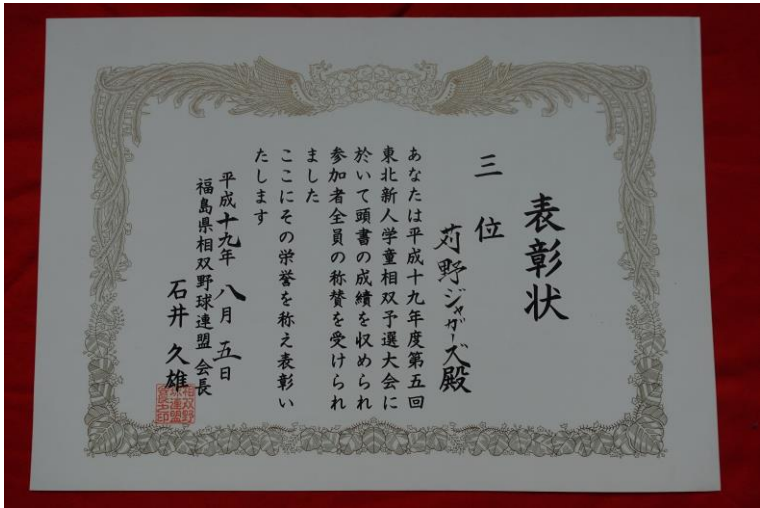 表彰状
三位
苅野ジャガーズ殿
あなたは平成十九年度第五回
東北新人学童相双予選大会に
於いて頭書の成績を収められ
参加者全員の称賛を受けられ
ました
ここにその栄誉を称え表彰い
たします
平成十九年八月五日
福島県相双野球連盟会長
石井久雄